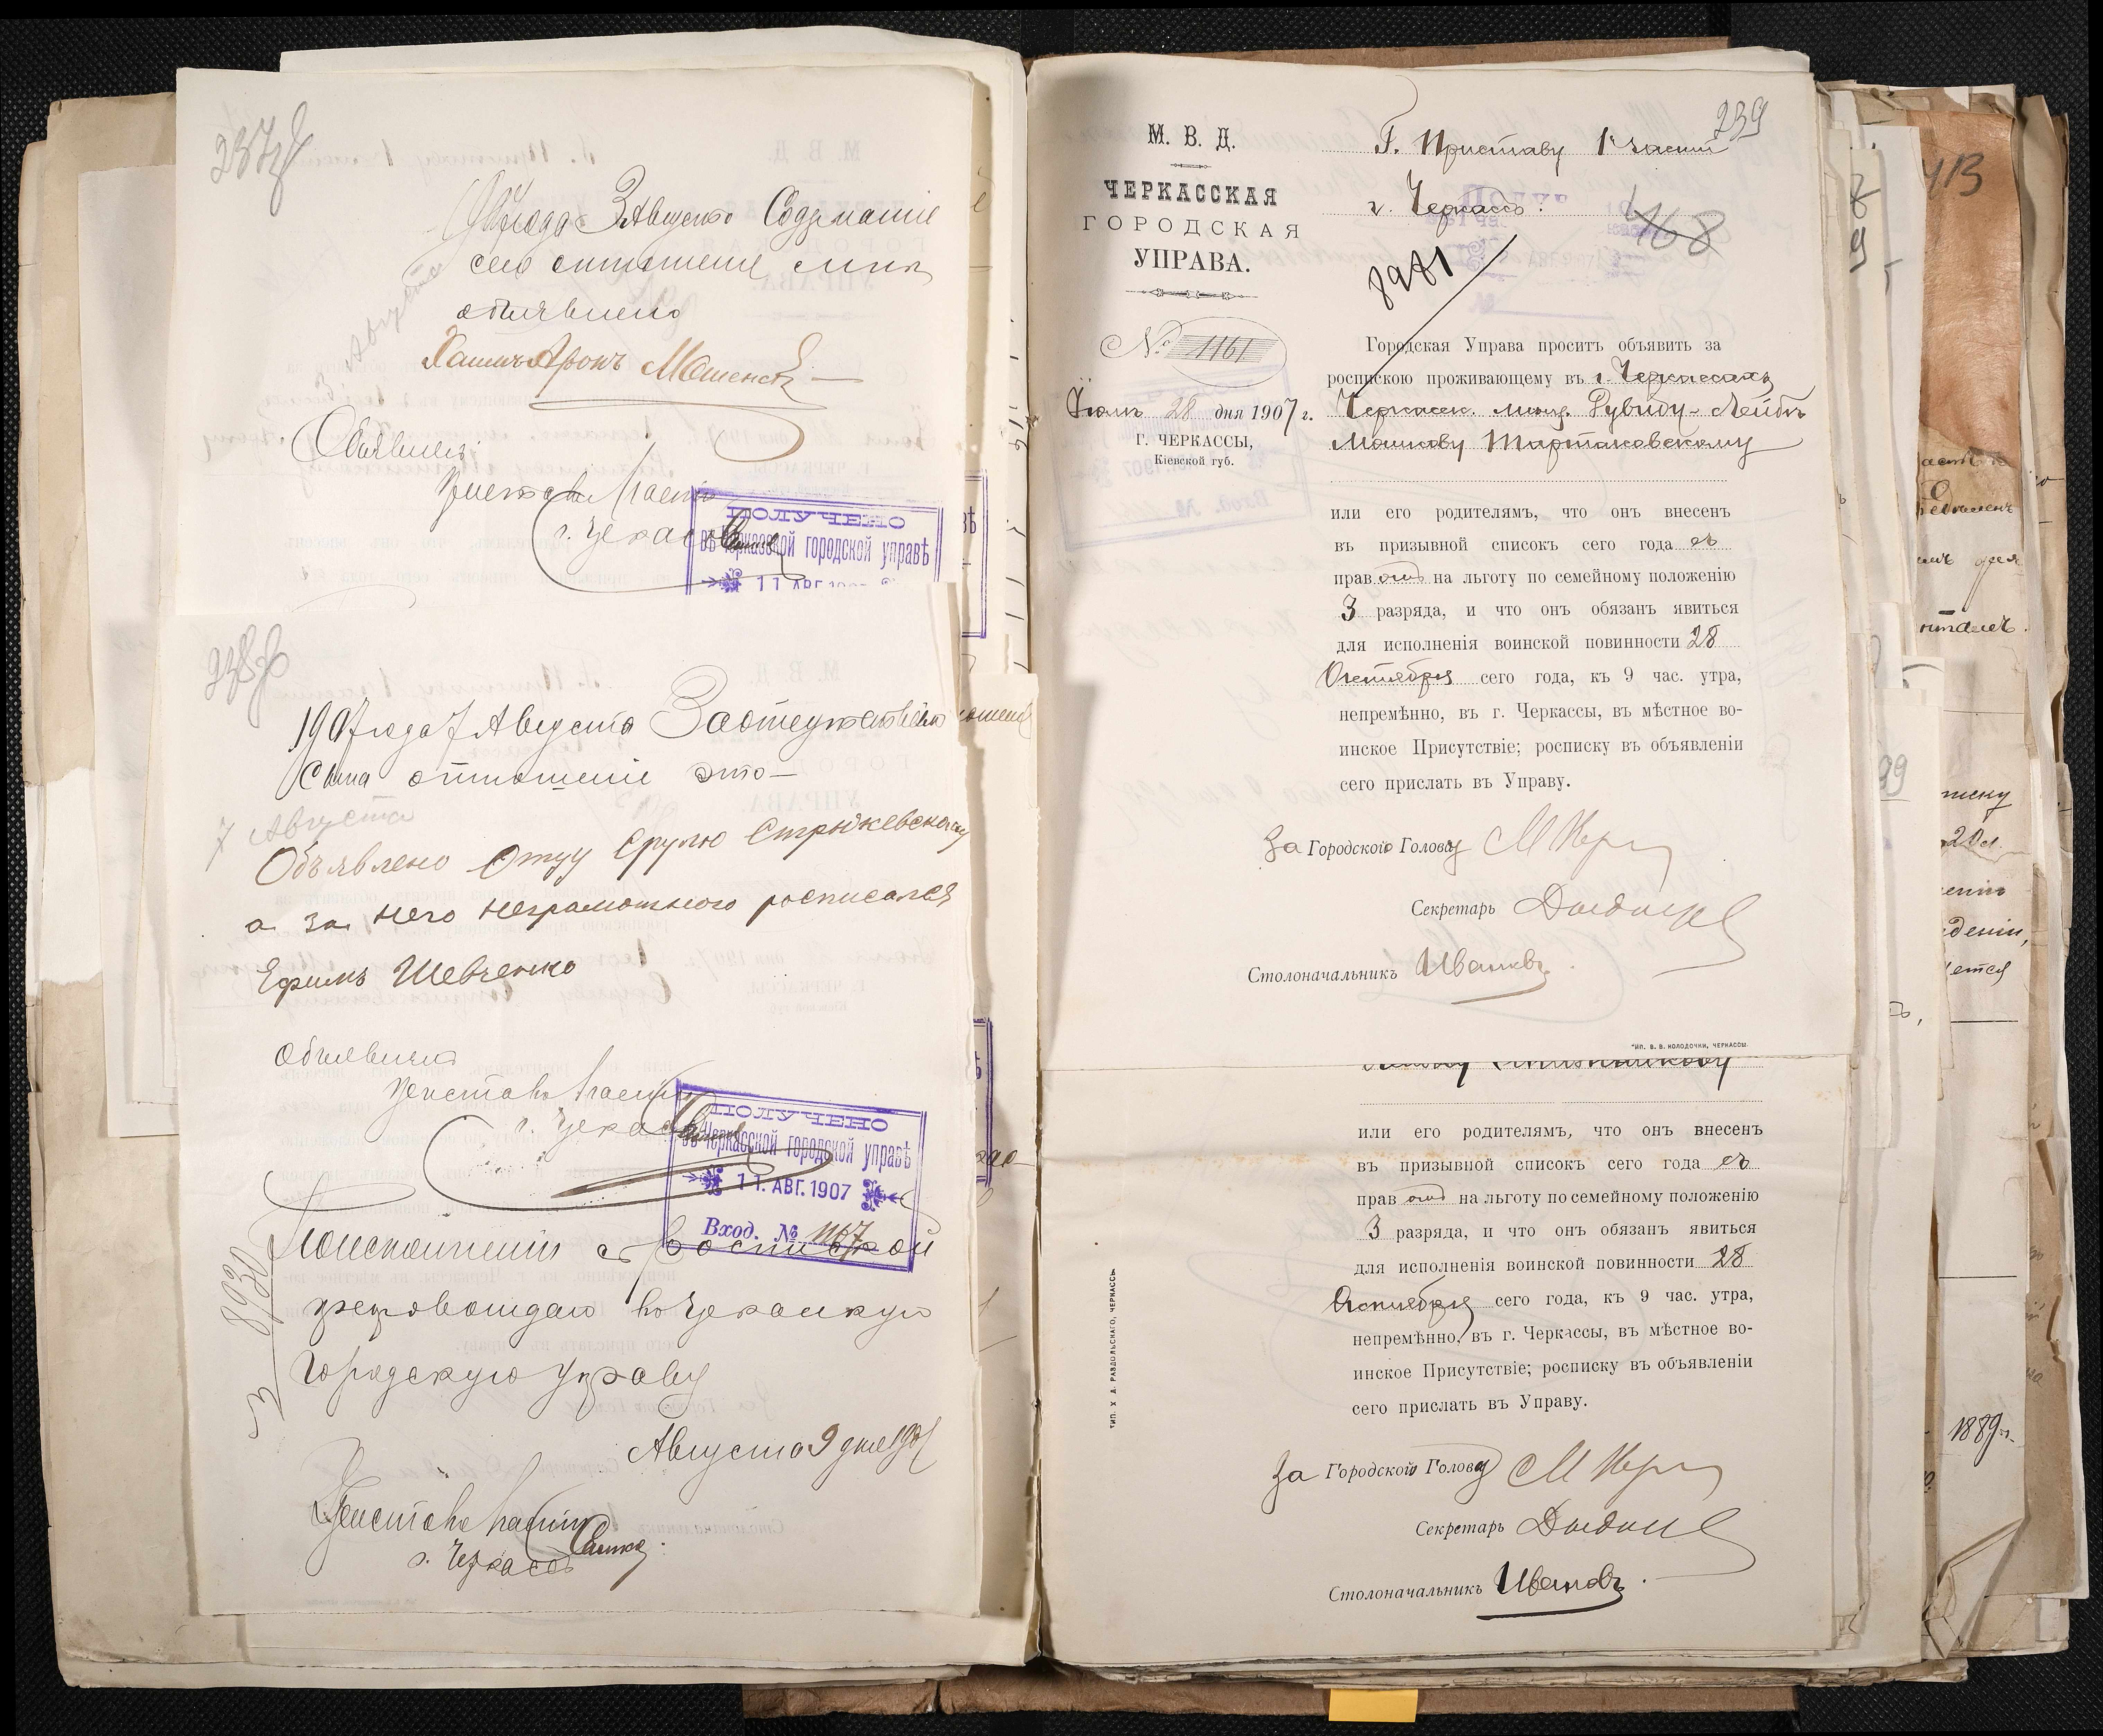 237об
1907 года 3 Августа Содержаніе
сего отношенія мнѣ
объявлено
3 Августа
Хаимъ Аронъ
Объявилъ
Приставъ 1 части
г. Черкассъ
ПОЛУЧЕНО
въ Черкасской городской управѣ
11 АВГ. 190
238об
1907 года 7 Августа
отношеніе это
7 Августа
Объявлено Отцу Срулю Стрыжевскому
а за него неграмотного росписался
Ефимъ Шевченко
Объявилъ
Приставъ 1 части
г. Черкассъ
ПОЛУЧЕНО
въ Черкасской городской управѣ
11. АВГ. 1907
Вход. №
По исполненіи съ роспиской
препровождаю въ Черкасскую
Городскую Управу
Августа 9 дня 1907
8930
Приставъ 1 части
г. Черкассъ
239
М. В. Д.
ЧЕРКАССКАЯ
ГОРОДСКАЯ
УПРАВА.
№ 1161
Іюля 28 дня 1907 г.
Г. ЧЕРКАССЫ,
Кіевской губ.
Г. Приставу 1 части
г. Черкассъ.
168
8981
Городская Управа проситъ объявить за
роспискою проживающему въ г. Черкассахъ
Черкасск. мѣщ. Рувиду-Лейбѣ
Мошкову Тартаковскому
или его родителямъ, что онъ внесенъ
въ призывной списокъ сего года съ
прав омъ на льготу по семейному положенію
3 разряда, и что онъ обязанъ явиться
для исполненія воинской повинности 28
Октября сего года, къ 9 час. утра,
непремѣнно, въ г. Черкассы, въ мѣстное во-
инское Присутствіе; росписку въ объявленіи
сего прислать въ Управу.
За Городского Голову
Секретарь
Столоначальникъ Ивановъ
ТИП. В. В. КОЛОДОЧКИ, ЧЕРКАССЫ.
или его родителямъ, что онъ внесенъ
въ призывной списокъ сего года съ
прав омъ на льготу по семейному положенію
3 разряда, и что онъ обязанъ явиться
для исполненія воинской повинности 28
Октября сего года, къ 9 час. утра,
непремѣнно, въ г. Черкассы, въ мѣстное во-
инское Присутствіе; росписку въ объявленіи
сего прислать въ Управу.
За Городского Голову
Секретарь
Столоначальникъ Ивановъ.
ТИП. Х. Д. РАЗДОЛЬСКАГО, ЧЕРКАССЫ.
1889 г.